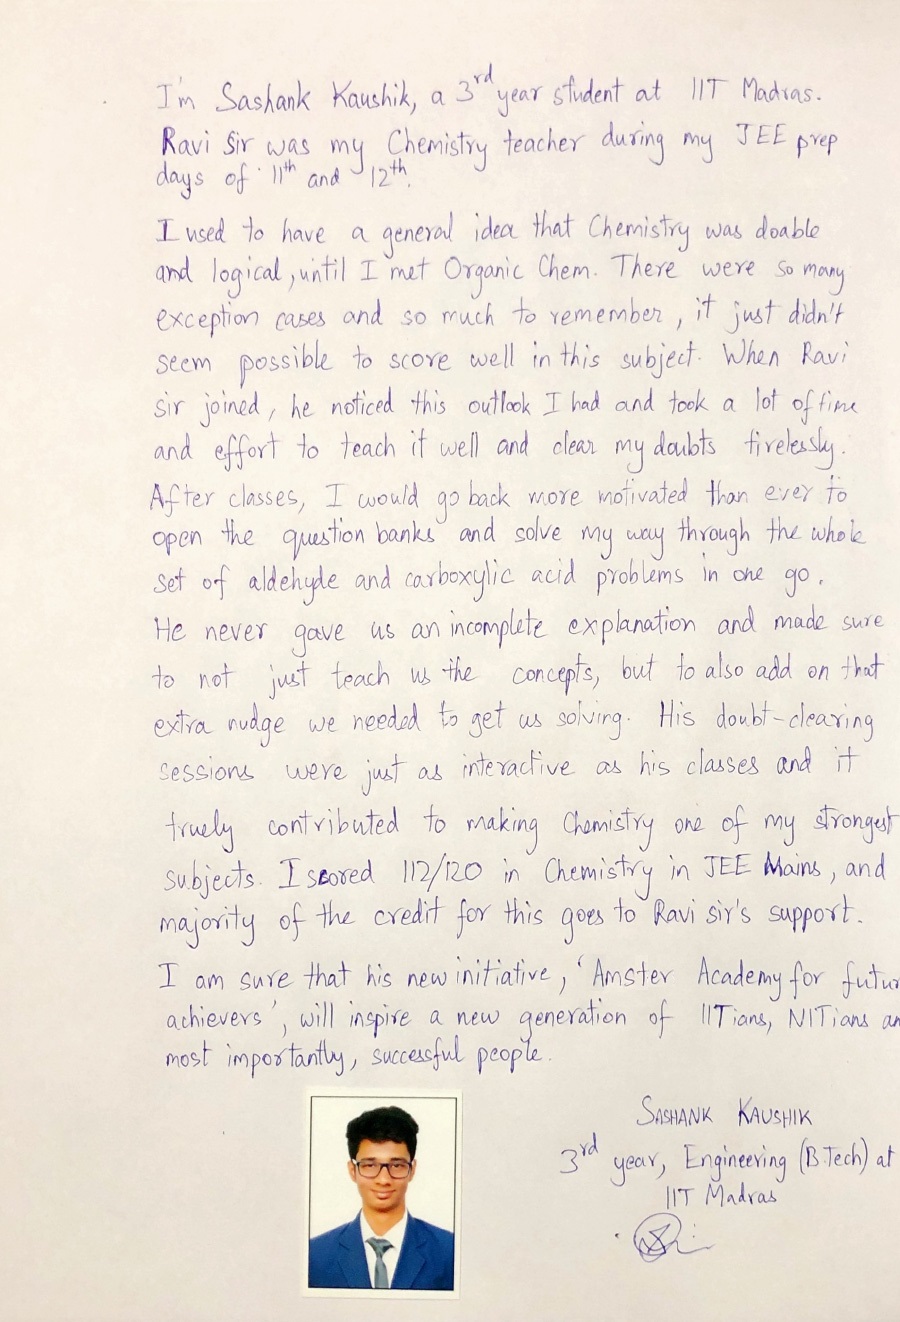 I'm Sashank Kaushik, a 3rd year student at IIT Madras.
Ravi Sir was my Chemistry teacher during my JEE prep
days of 11th and 12th.
I used to have a general idea that Chemistry was doable
and logical, until I met Organic Chem. There were so many
exception cases and so much to remember, it just didn't
seem possible to score well in this subject. When Ravi
sir joined, he noticed this outlook I had and took a lot of time
and effort to teach it well and clear my doubts tirelessly.
After classes, I would go back more motivated than ever to
open the question banks and solve my way through the whole
set of aldehyde and carboxylic acid problems in one go.
He never gave us an incomplete explanation and made sure
to not just teach us the concepts, but to also add on that
extra nudge we needed to get us solving. His doubt-clearing
sessions were just as interactive as his classes and it
truely contributed to making Chemistry one of my strongest
subjects. I scored 112/120 in Chemistry in JEE Mains, and
majority of the credit for this goes to Ravi sir's support.
I am sure that his new initiative, 'Amster Academy for futur
achievers', will inspire a new generation of IITians, NITians an
most importantly, successful people.
SASHANK KAUSHIK
3rd year, Engineering (B.Tech) at
IIT Madras